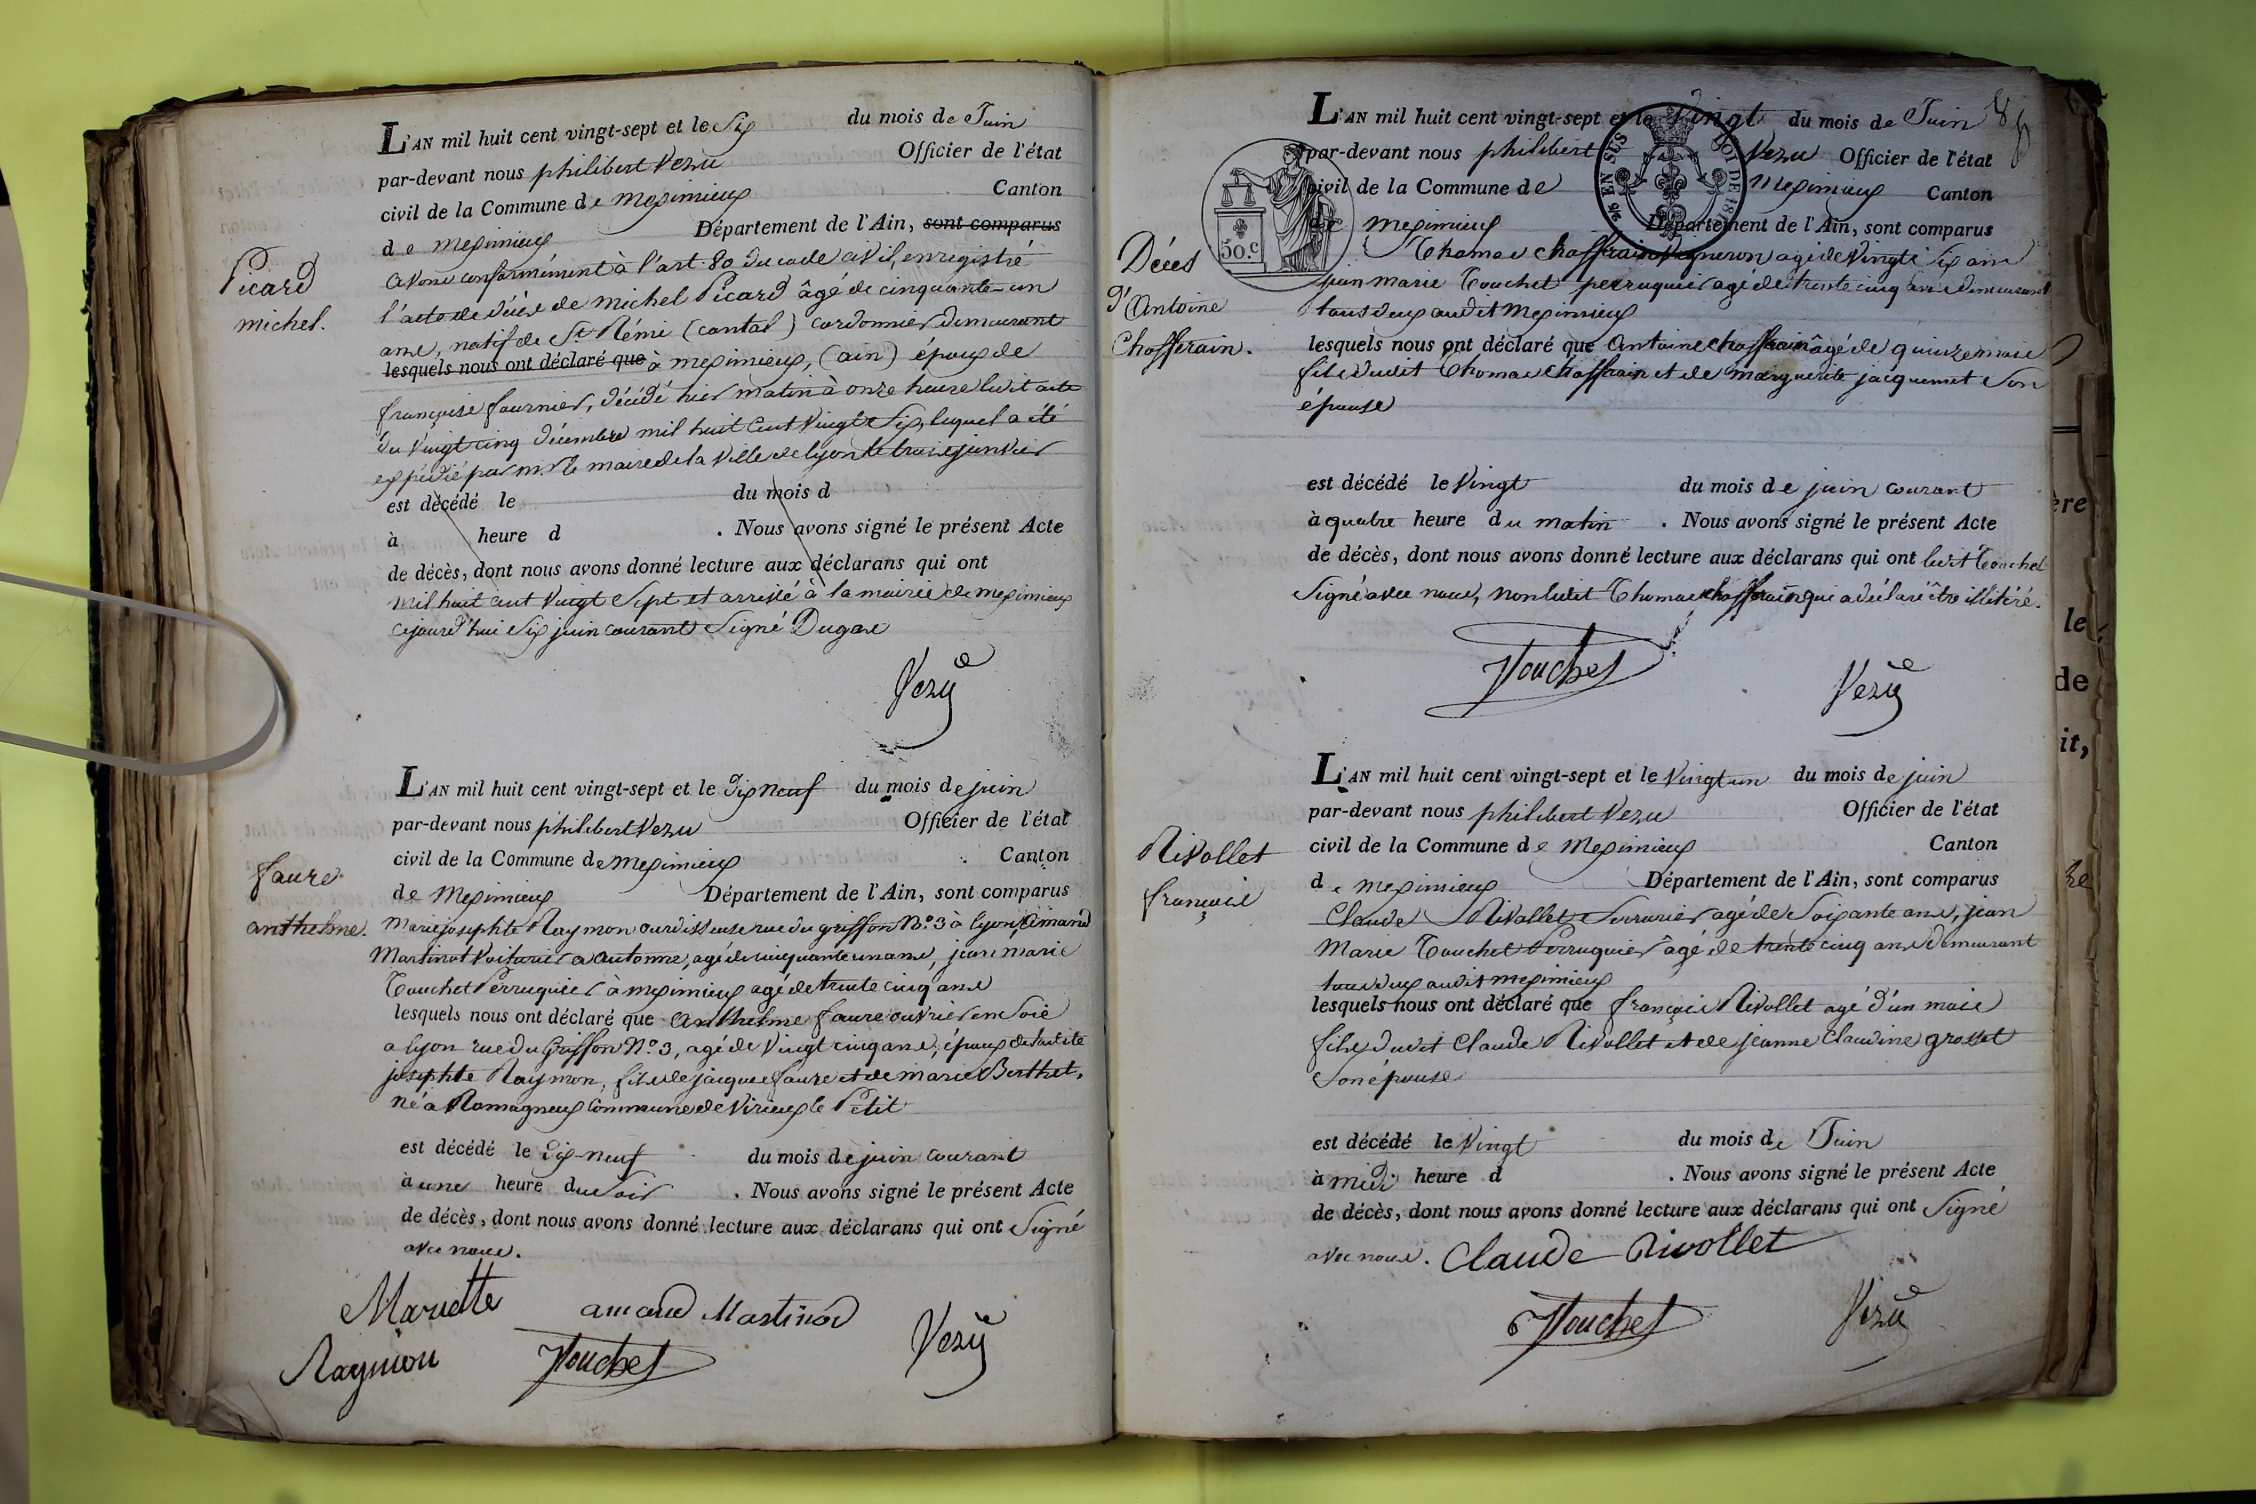 L'AN mil huit cent vingt-sept et le Six du mois de Juin
par-devant nous philibert Vezu Officier de l'état
civil de la Commune de meximieux Canton
de meximieux Département de l'Ain, sont comparus
Picard
michel.
avons conformément à l'art. 80 du code civil, enregistré
l'acte de décès de michel Picard âgé de cinquante-un
ans, natif de St Rémi (cantal) cordonnier demeurant
lesquels nous ont déclaré que à meximieux, (ain) époux de
françoise fournier, décédé hier matin à onze heures ledit acte
du vingt cinq décembre mil huit cent vingt Six, lequel a été
expédié par mr. le maire de la ville de lyon le treize janvier
est décédé le du mois d
à heure d . Nous avons signé le présent Acte
de décès, dont nous avons donné lecture aux déclarans qui ont
mil huit cent vingt Sept et arrivé à la mairie de meximieux
cejourd'hui Six juin courant Signé Dugas
Vezu
L'AN mil huit cent vingt-sept et le dix neuf du mois de juin
par-devant nous philibert Vezu Officier de l'état
civil de la Commune de meximieux Canton
de meximieux Département de l'Ain, sont comparus
faure
anthelme.
Marie josephte Raymon ourdisseuse rue du griffon No. 3 à lyon,
Martinot Voiturier a autonne, agé de cinquante un ans, jean marie
Touchet Perruquier à meximieux agé de trente cinq ans
lesquels nous ont déclaré que anthelme faure ouvrier en Soie
a lyon rue du Griffon No. 3, agé de vingt cinq ans, époux de ladite
josephte Raymon, fils de jacques faure et de marie Berthet,
né à Romagneux Commune de Virieux le Petit
est décédé le dix-neuf du mois de juin courant
à une heure du Soir . Nous avons signé le présent Acte
de décès, dont nous avons donné lecture aux déclarans qui ont Signé
avec nous.
Mariette amand Martinod Vezu
Raymon Touchet
L'AN mil huit cent vingt-sept et le Vingt du mois de Juin
par-devant nous philibert Vezu Officier de l'état
civil de la Commune de Meximieux Canton
de meximieux Département de l'Ain, sont comparus
50.c
EN SUS
LOI DE
Décès
d'Antoine
Chafferain.
Thomas Chaffrain Vigneron agé de Vingt Six ans
jean marie Touchet perruquier agé de trente cinq ans demeurant
tous deux audit Meximieux
lesquels nous ont déclaré que Antoine Chaffrain âgé de quinze mois
fils dudit Thomas Chaffrain et de marguerite jacquemet Son
épouse
est décédé le Vingt du mois de juin courant
à quatre heure du matin . Nous avons signé le présent Acte
de décès, dont nous avons donné lecture aux déclarans qui ont ledit Touchet
Signé avec nous, non ledit Thomas Chaffrain qui a déclaré être illitéré.
Touchet Vezu
L'AN mil huit cent vingt-sept et le vingt un du mois de juin
par-devant nous philibert Vezu Officier de l'état
civil de la Commune de Meximieux Canton
de meximieux Département de l'Ain, sont comparus
Rivollet
françois
Claude Rivollet Serrurier agé de Soixante ans, jean
Marie Touchet Perruquier âgé de trente cinq ans demeurant
tous deux audit meximieux
lesquels nous ont déclaré que françois Rivollet agé d'un mois
fils dudit Claude Rivollet et de jeanne Claudine grosset
Son épouse
est décédé le Vingt du mois de Juin
à midi heure d . Nous avons signé le présent Acte
de décès, dont nous avons donné lecture aux déclarans qui ont Signé
avec nous. Claude Rivollet
Touchet Vezu
ère
le
de
it,